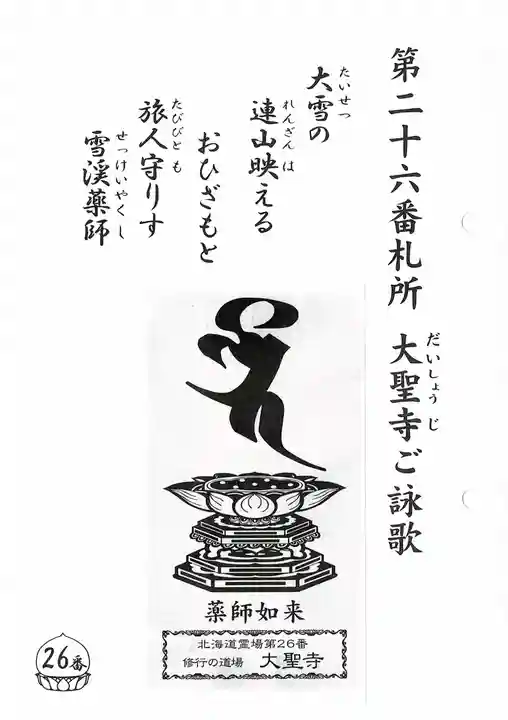 第二十六番札所 大聖寺ご詠歌
だいしょうじ
大雪の
たいせつ
連山映える
れんざん は
おひざもと
旅人守りす
たびびと も
雪渓薬師
せっけいやくし
薬師如来
北海道霊場第26番
修行の道場 大聖寺
26番